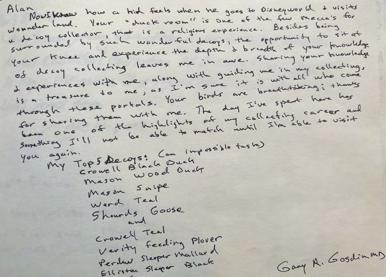 Alan,
Now I know how a kid feels when he goes to Disneyworld & visits
wonderland. Your "duck room" is one of the few mecca's for
a decoy collector, that is a religious experience. Besides being
surrounded by such wonderful decoys, the opportunity to sit at
your knee and experience the depth & breadth of your knowledge
of decoy collecting leaves me in awe. Sharing your knowledge
& experiences with me, along with guiding me in my collecting,
is a treasure to me, as I'm sure it is with all who come
through these portals. Your birds are breathtaking; thanks
for sharing them with me. The day I've spent here has
been one of the highlights of my collecting career and
something I'll not be able to match until I'm able to visit
you again.
My Top 5 Decoys: (an impossible task)
Crowell Black Duck
Mason Wood Duck
Mason Snipe
Ward Teal
Shourds Goose
and
Crowell Teal
Verity Feeding Plover
Perdew Sleeper Mallard
Elliston Sleeper Black
Gary R. Gosdin MD